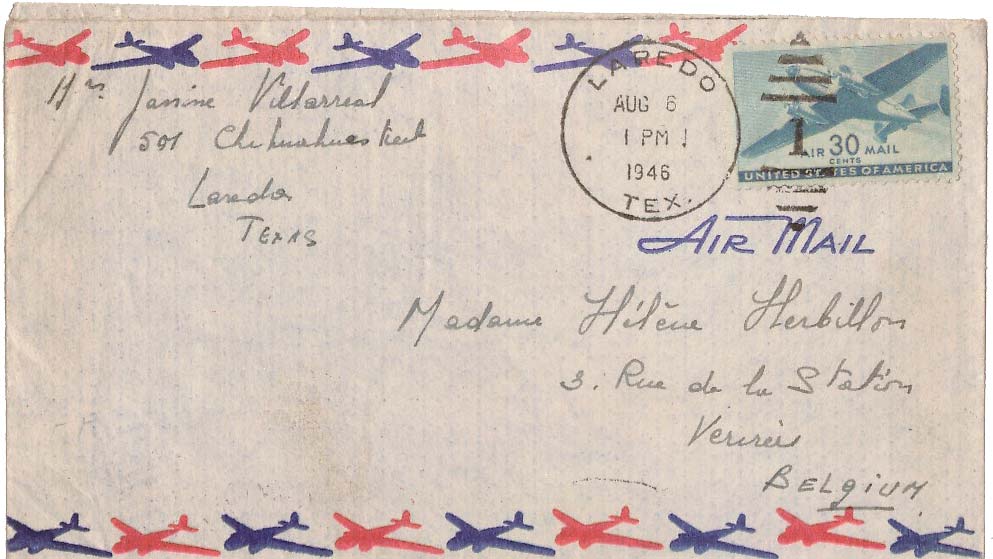 Mrs. Janine Villarreal
501 Chihuahua street
Laredo
TEXAS
LAREDO
AUG 6
1 PM
1946
TEX.
1
AIR 30 MAIL
CENTS
UNITED STATES OF AMERICA
AIR MAIL
Madame Hélène Herbillon
3. Rue de la Station
BELgiUM